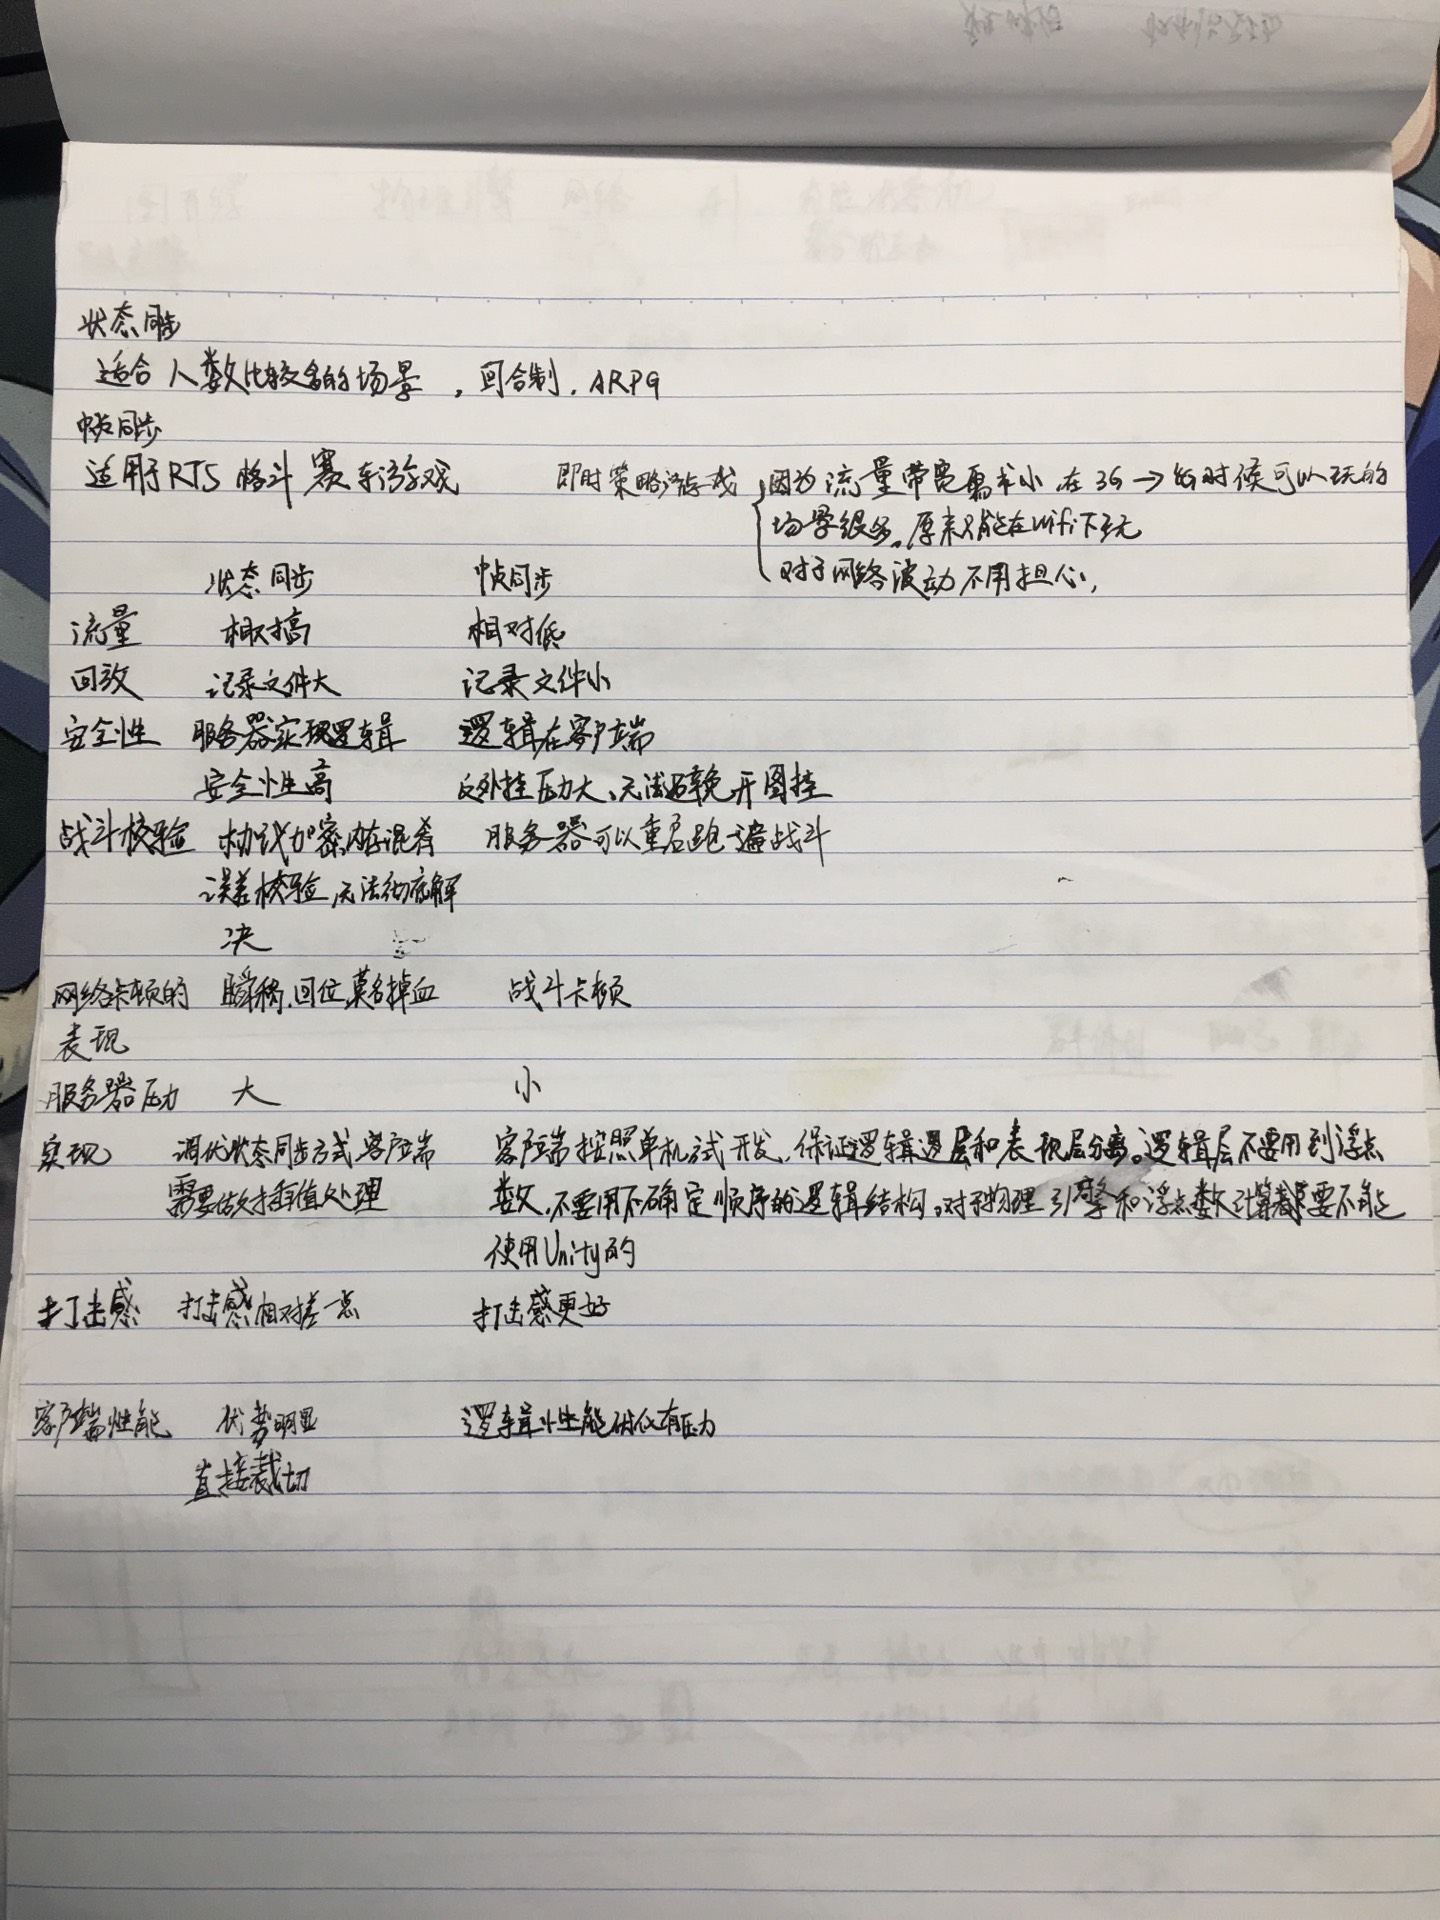 状态同步
适合人数比较多的场景，回合制，ARPG
帧同步
适用于RTS 格斗 赛车游戏 即时策略游戏 因为流量带宽需求小，在3G→4G时候可以玩的
场景很多。原来只能在wifi下玩
对于网络波动不用担心，
状态同步 帧同步
流量 相对高 相对低
回放 记录文件大 记录文件小
安全性 服务器实现逻辑 逻辑在客户端
安全性高 反外挂压力大、无法避免开图挂
战斗校验 协议加密，内存混肴 服务器可以重启跑一遍战斗
误差校验，无法彻底解
决
网络卡顿的 瞬移，回位，莫名掉血 战斗卡顿
表现
服务器压力 大 小
实现 调优状态同步方式客户端 客户端按照单机试开发，保证逻辑逻层和表现层分离。逻辑层不要用到浮点
需要做插值处理 数，不要用不确定顺序的逻辑结构。对于物理引擎和浮点数计算都要不能
使用Unity的
打击感 打击感相对差一点 打击感更好
客户端性能 优势明显 逻辑性能优化有压力
直接裁切